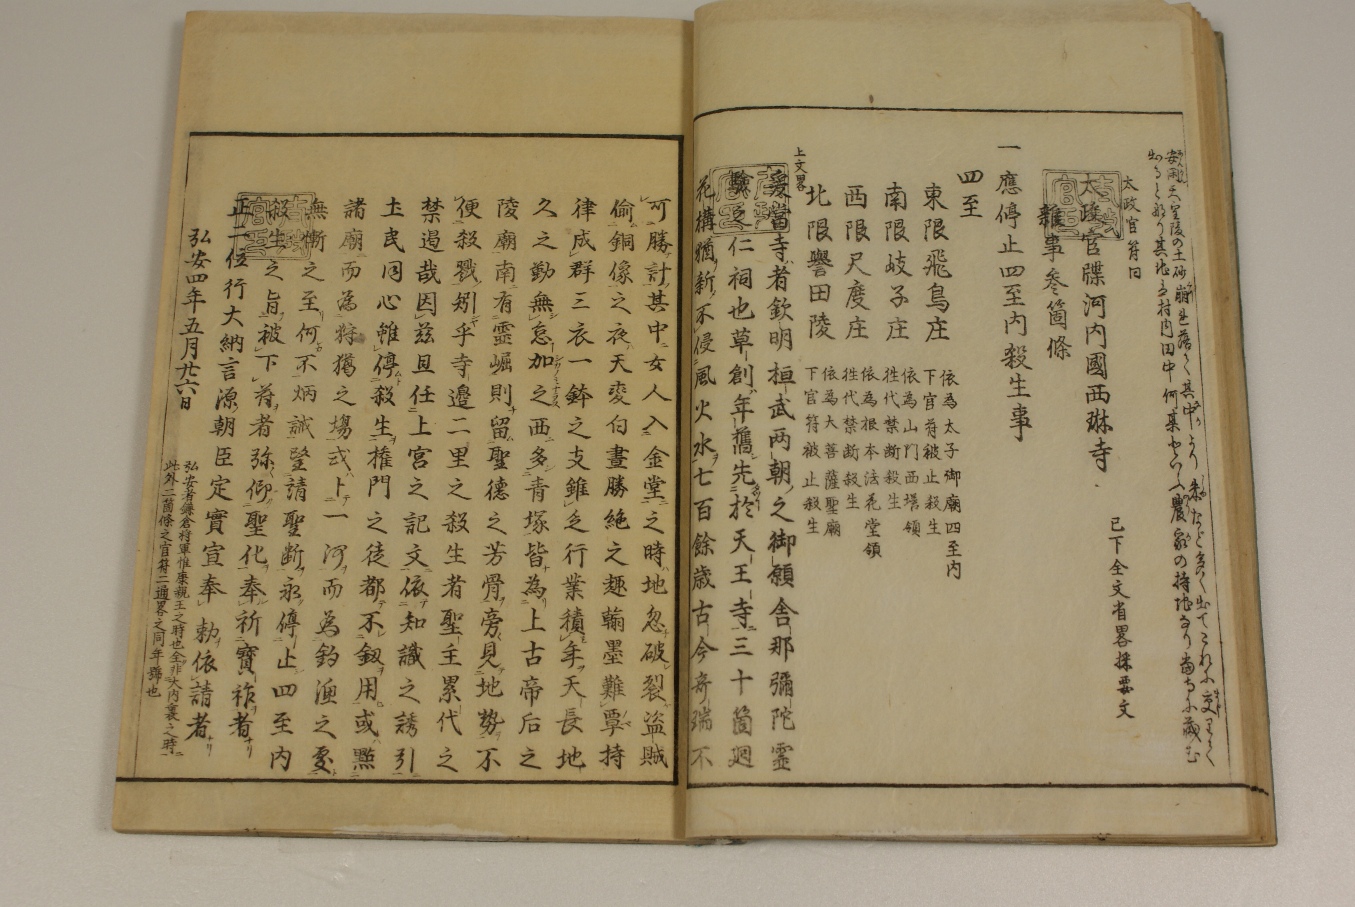 太政官符曰
太政官牒河内國西琳寺
已下全文省畧採要文
雜事叁箇條
一應停止四至内殺生事
四至
東限飛鳥庄 依為太子御廟四至内下官符被止殺生
南限岐子庄 依為山門西塔領往代禁断殺生
西限尺度庄 依為根本法花堂領往代禁断殺生
北限譽田陵 依為大菩薩聖廟下官符被止殺生
上文畧
爰當寺者欽明桓武両朝之御願舎那彌陀靈
驗之仁祠也草創年舊先於天王寺三十箇廻
花構猶新不侵風火水七百餘歳古今奇瑞不
可勝計其中女人入金堂之時地忽破裂盜賊
偷銅像之夜天変白晝勝絶之趣翰墨難覃持
律成群三衣一鉢之支雖乏行業積年天長地
久之勤無怠加之西多青塚皆為上古帝后之
陵廟南有靈崛則留聖德之芳骨旁見地勢不
便殺戮矧乎寺邉二里之殺生者聖主累代之
禁遏哉因茲且任上宮之記文依知識之誘引
土民同心雖停殺生権門之徒都不叙用或點
諸廟而為狩獦之場或卜一河而為釣漁之処
無慚之至何不炳誡望請聖断永停止四至内
殺生之旨被下符者弥仰聖化奉祈寳祚者
正二位行大納言源朝臣定實宣奉勅依請者
弘安四年五月廿六日
弘安者鎌倉将軍惟康親王之時也全非大内裏之時
此外二箇條之官符二通畧之同年號也